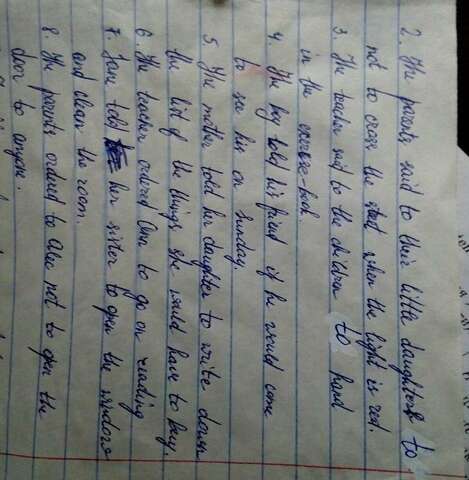 2. The parents said to their little daughters to
not to cross the street when the light is red.
3. The teacher said to the children to hand
in the exercise-book.
4. The boy told his friend if he would come
to see him on Sunday.
5. The mother told her daughter to write down
the list of the things she would have to buy.
6. The teacher ordered to go on reading
7. Jane told her sister to open the windows
and clean the room.
8. The parents ordered to Alec not to open the
door to anyone.